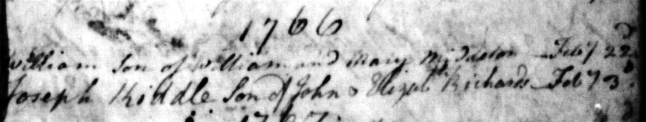 1766
William Son of William and Mary Middleton Feb'y 22d
Joseph Kiddle Son of John & Elizab Richards Feb'y 3d